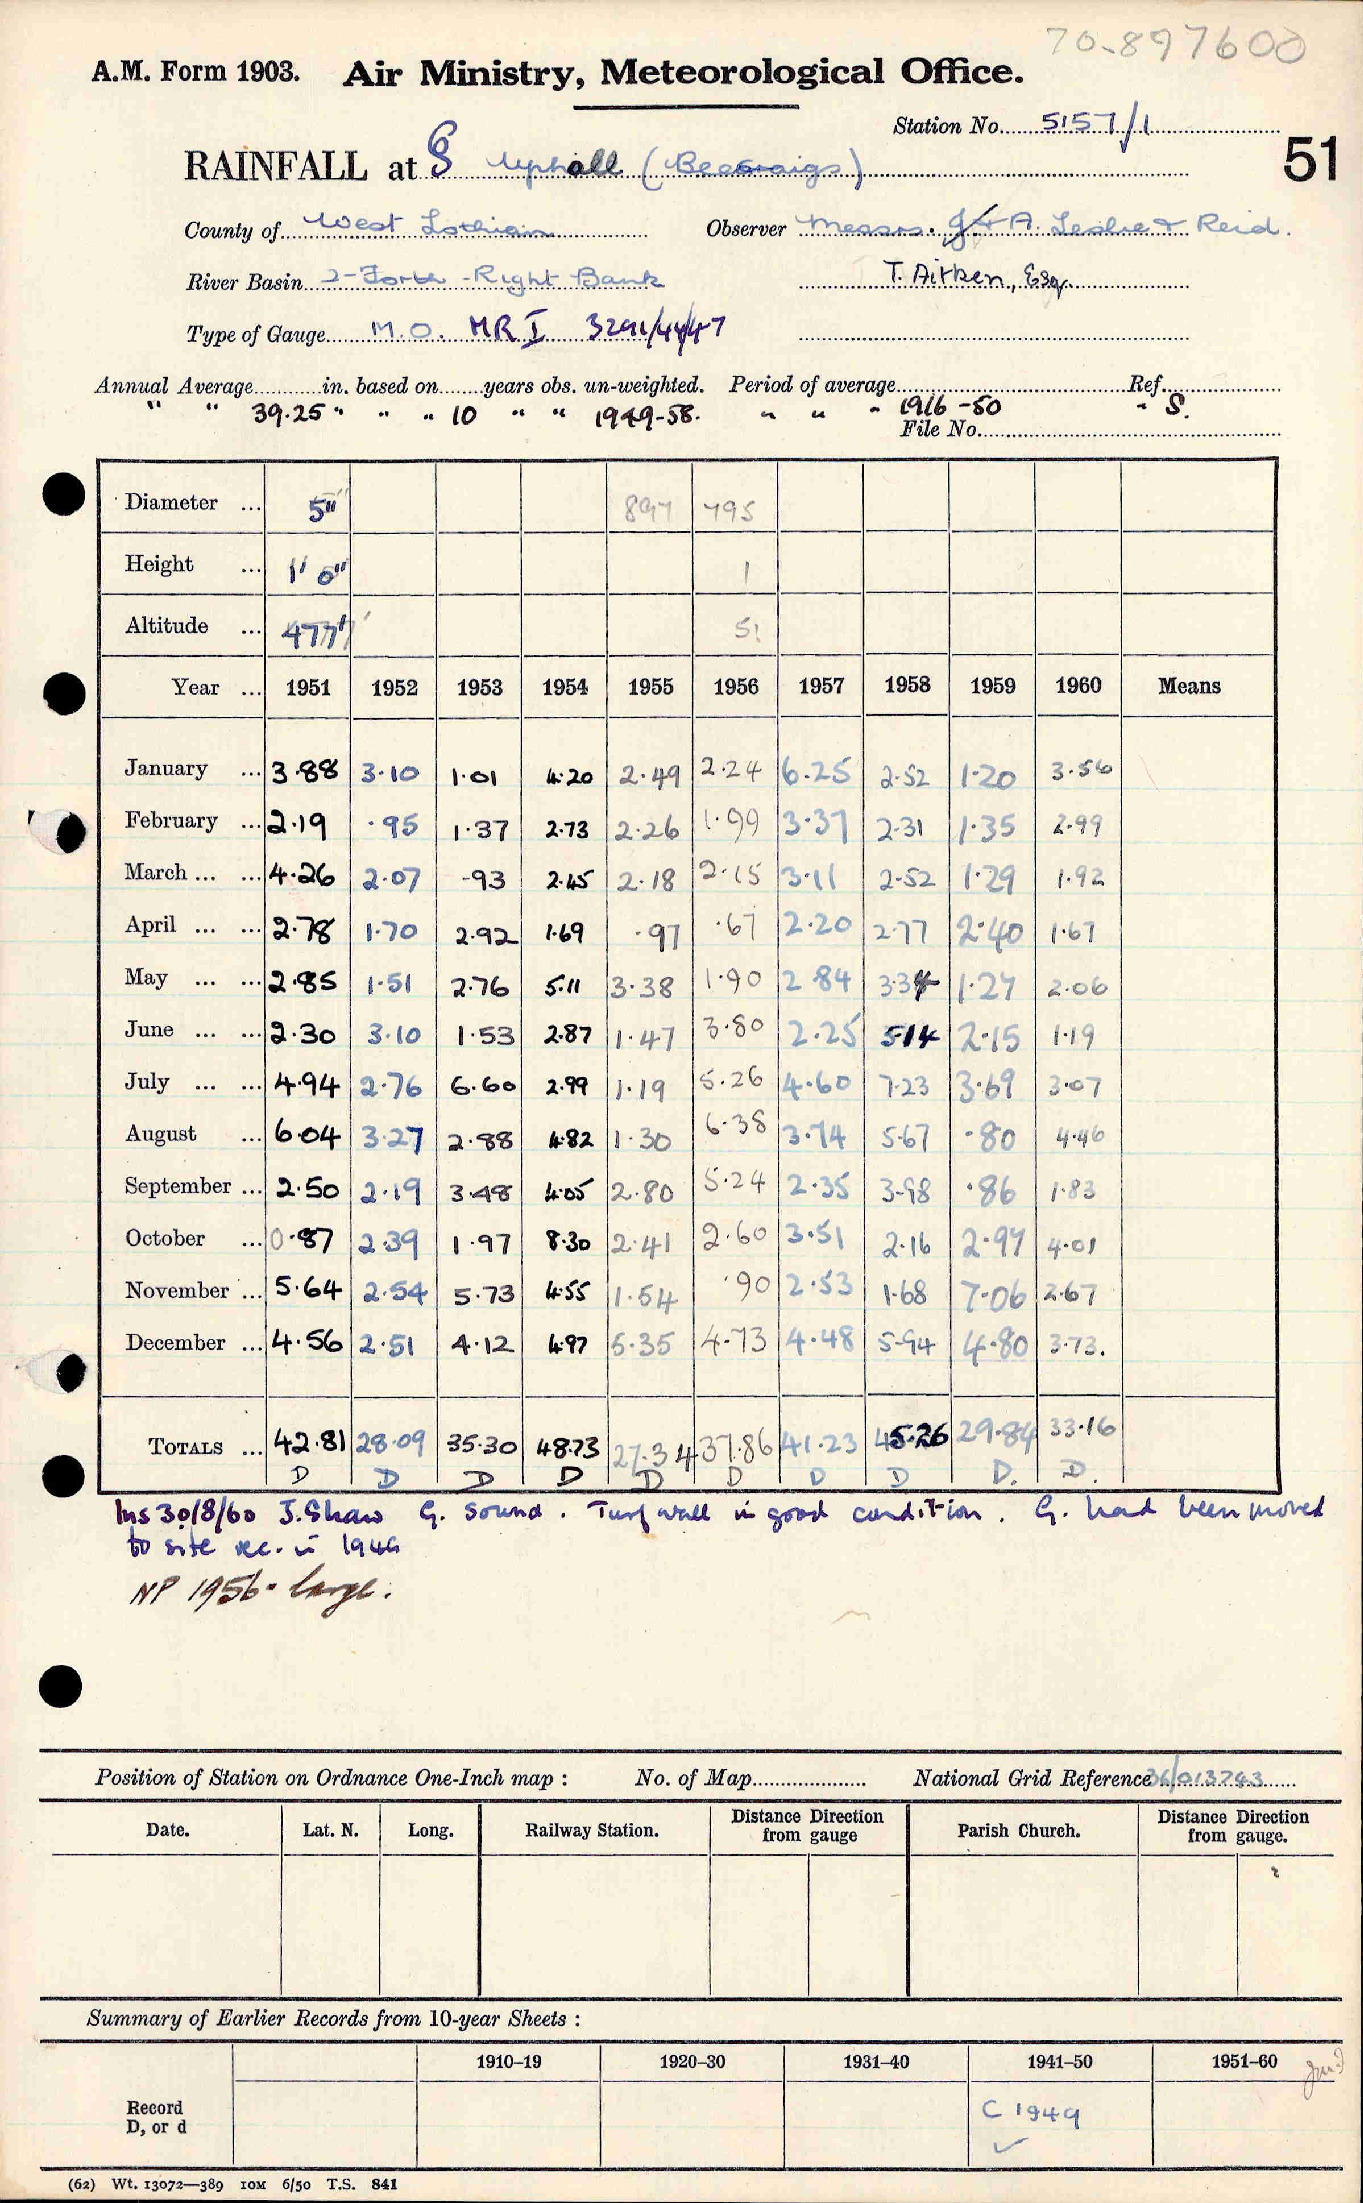 70-897600
A.M. Form 1903. Air Ministry, Meteorological Office.
Station No. 5157/1
51
RAINFALL at Uphall (Beecraigs)
County of West Lothian Observer Messrs. J & A. Leslie & Reid.
River Basin 2-Forth - Right Bank T. Aitken, Esq.
Type of Gauge M.O. MR I 3291/44/47
Annual Average in. based on years obs. un-weighted. Period of average Ref.
" " 39.25 " " " 10 " " 1949-58. " " " 1916-50 " S.
File No.
Diameter ... 5" 897 795
Height ... 1' 0" 1
Altitude ... 477' 51
Year ... 1951 1952 1953 1954 1955 1956 1957 1958 1959 1960 Means
January ... 3.88 3.10 1.01 4.20 2.49 2.24 6.25 2.52 1.20 3.56
February ... 2.19 .95 1.37 2.73 2.26 1.99 3.37 2.31 1.35 2.99
March ... ... 4.26 2.07 .93 2.45 2.18 2.15 3.11 2.52 1.29 1.92
April ... ... 2.78 1.70 2.92 1.69 .97 .67 2.20 2.77 2.40 1.67
May ... ... 2.85 1.51 2.76 5.11 3.38 1.90 2.84 3.34 1.27 2.06
June ... ... 2.30 3.10 1.53 2.87 1.47 3.80 2.25 5.14 2.15 1.19
July ... ... 4.94 2.76 6.60 2.99 1.19 5.26 4.60 7.23 3.69 3.07
August ... 6.04 3.27 2.88 4.82 1.30 6.38 3.74 5.67 .80 4.46
September ... 2.50 2.19 3.48 4.05 2.80 5.24 2.35 3.98 .86 1.83
October ... 0.87 2.39 1.97 8.30 2.41 2.60 3.51 2.16 2.97 4.01
November ... 5.64 2.54 5.73 4.55 1.54 .90 2.53 1.68 7.06 2.67
December ... 4.56 2.51 4.12 4.97 5.35 4.73 4.48 5.94 4.80 3.73.
TOTALS ... 42.81 28.09 35.30 48.73 27.34 37.86 41.23 45.26 29.84 33.16
D D D D D D D D D. D.
Ins 30/8/60 J. Shaw G. sound. Turf wall in good condition. G. had been moved
to site rec. in 1946
NP 1956. large.
Position of Station on Ordnance One-Inch map : No. of Map National Grid Reference 36/013743
Date. Lat. N. Long. Railway Station. Distance from gauge Direction Parish Church. Distance from gauge. Direction
Summary of Earlier Records from 10-year Sheets :
1910–19 1920–30 1931–40 1941–50 1951–60
Record C 1949
D, or d ✓
(62) Wt. 13072—389 10M 6/50 T.S. 841